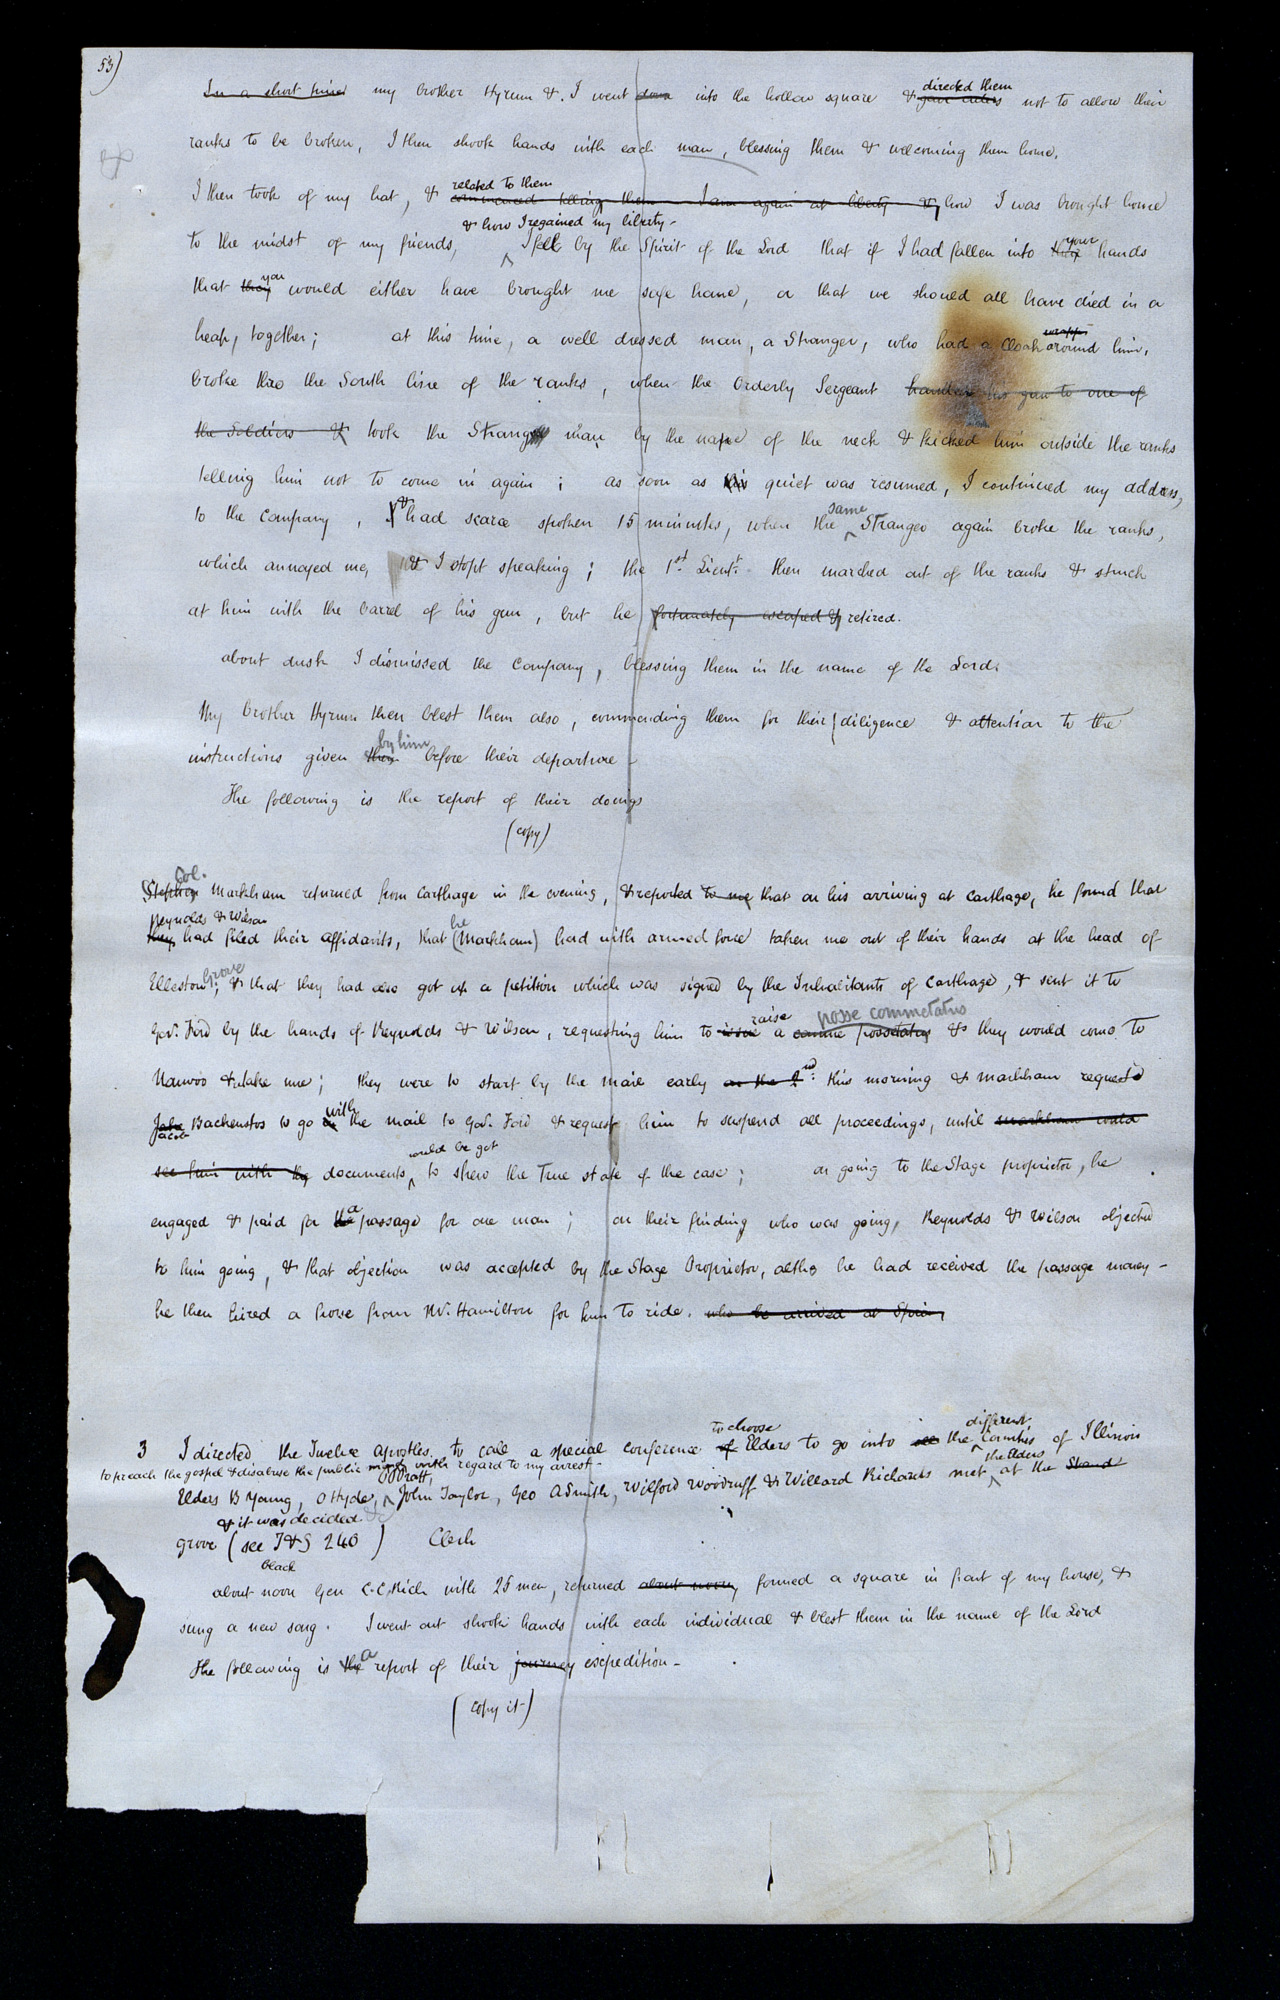 53)
In a short time my brother Hyrum & I went down into the hollow square & gave orders directed them not to allow their
ranks to be broken, I then shook hands with each man, blessing them & welcoming them home.
I then took of my hat, & commenced telling them I am again at liberty & related to them how I was brought home
to the midst of my friends, & how I regained my liberty - I felt by the Spirit of the Lord that if I had fallen into their your hands
that they you would either have brought me safe home, or that we should all have died in a
heap, together; at this time, a well dressed man, a Stranger, who had a Cloak wrapp around him,
broke thro the South line of the ranks, when the Orderly Sergeant handed his gun to one of
the Soldiers & took the Strange man by the nape of the neck & kicked him outside the ranks
telling him not to come in again; as soon as quiet was resumed, I continued my address,
to the Company, I & had scarce spoken 15 minutes, when the same Stranger again broke the ranks,
which annoyed me, & I stopt speaking; the 1st. Lieut. then marched out of the ranks & struck
at him with the barrel of his gun, but he fortunately escaped & retired.
about dusk I dismissed the Company, blessing them in the name of the Lord.
My brother Hyrum then blest them also, commending them for their diligence & attention to the
instructions given them by him before their departure -
The following is the report of their doings
(copy)
Stephen Col. Markham returned from Carthage in the evening, & reported to me that on his arriving at Carthage, he found that
they Reynolds & Wilson had filed their affidavits, that he (Markham) had with armed force taken me out of their hands at the head of
Elleston Grove, & that they had also got up a petition which was signed by the Inhabitants of Carthage, & sent it to
Gov. Ford by the hands of Reynolds & Wilson, requesting him to issue raise a posse commetatus & they would come to
Nauvoo & take me; they were to start by the mail early on the 2nd. this morning & Markham request'd
Jacob Backenstos to go in with the mail to Gov. Ford & request him to suspend all proceedings, until Markham could
see him with the documents would be got to shew the True state of the case; on going to the Stage proprietor, he
engaged & paid for the a passage for one man; on their finding who was going, Reynolds & Wilson objected
to him going, & that objection was accepted by the Stage Proprietor, altho he had received the passage money -
he then hired a horse from Mr. Hamilton for him to ride. who he arrived at Spring
3 I directed the Twelve Apostles to call a special conference of to choose Elders to go into the different Counties of Illinois
to preach the gospel & disabuse the public mind with regard to my arrest -
Elders B Young, O Hyde, P P Pratt, John Taylor, Geo A Smith, Wilford Woodruff & Willard Richards met the Elders at the Stand
grove & it was decided &c (see T&S 240) Clerk
about noon black Gen C. C. Rich with 25 men, returned about noon, formed a square in front of my house, &
sung a new song. I went out shook hands with each individual & blest them in the name of the Lord
The following is the a report of their journey expedition -
(copy it)